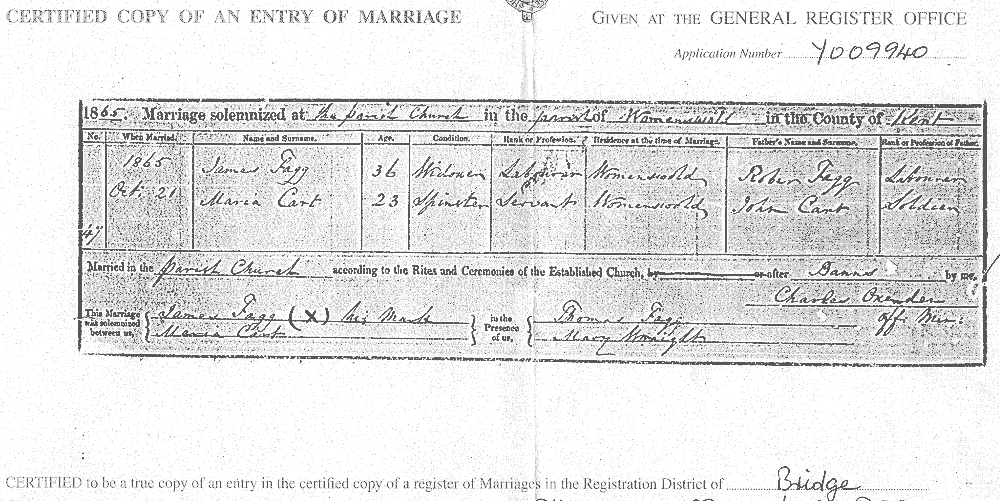 CERTIFIED COPY OF AN ENTRY OF MARRIAGE GIVEN AT THE GENERAL REGISTER OFFICE
Application Number Y009940
1865. Marriage solemnized at the Parish Church in the parish of Womenswold in the County of Kent
No. When Married. Name and Surname. Age. Condition. Rank or Profession. Residence at the time of Marriage. Father's Name and Surname. Rank or Profession of Father.
1865 James Fagg 36 Widower Labourer Womenswold Rober Fagg Labourer
Oct. 21 Maria Cant 23 Spinster Servant Womenswold John Cant Soldier
47
Married in the Parish Church according to the Rites and Ceremonies of the Established Church, by or after Banns by me,
Charles Oxenden
This Marriage was solemnized between us, James Fagg (X) his Mark in the Presence of us, Thomas Fagg Offg Min:
Maria Cant Mary Wraight
CERTIFIED to be a true copy of an entry in the certified copy of a register of Marriages in the Registration District of Bridge